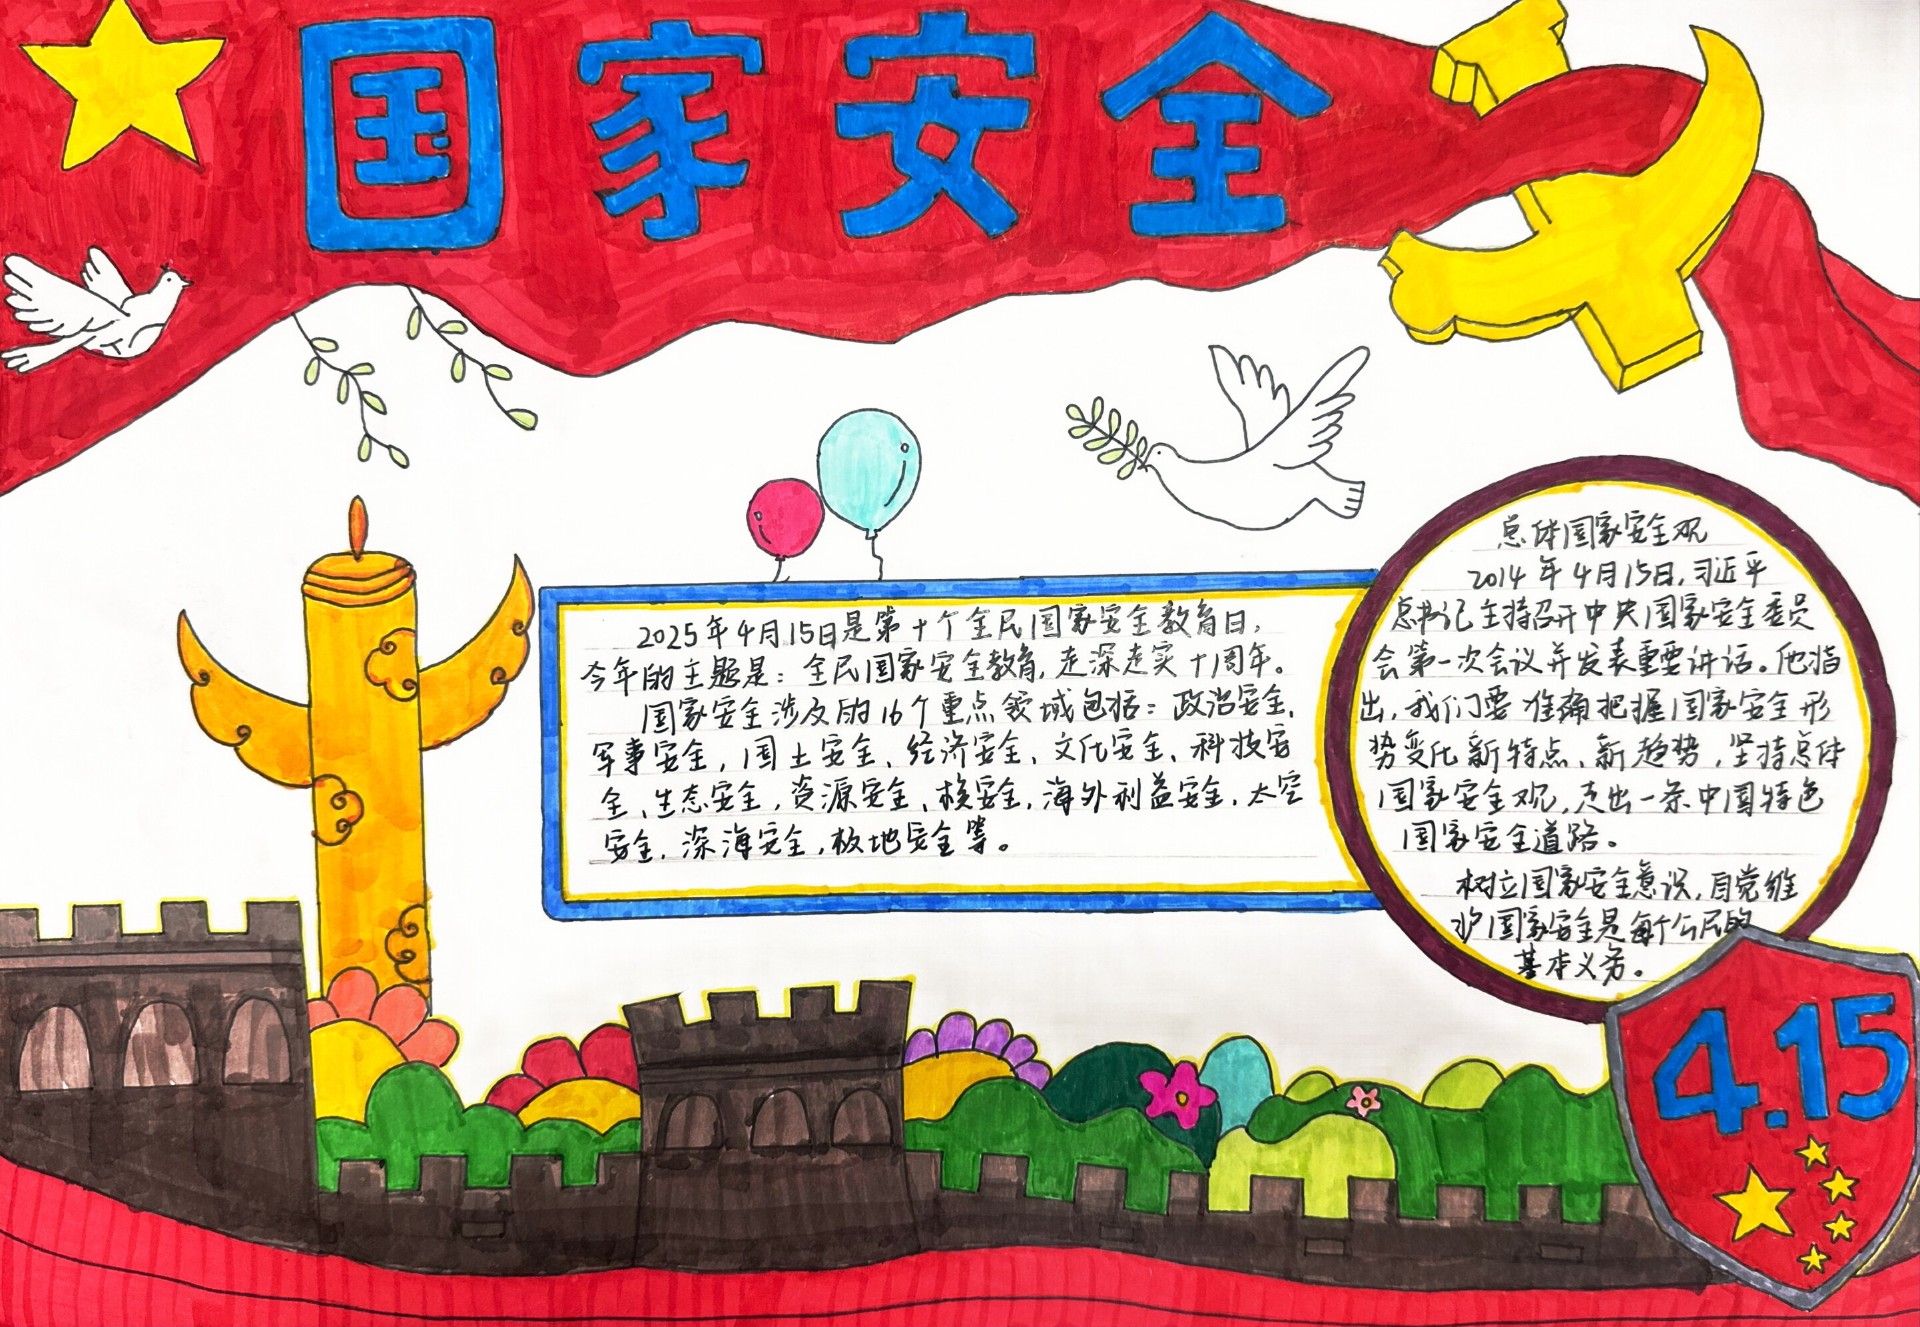 国家安全
2025年4月15日是第十个全民国家安全教育日,
今年的主题是：全民国家安全教育,走深走实十周年。
国家安全涉及的16个重点领域包括：政治安全、
军事安全,国土安全、经济安全、文化安全、科技安
全、生态安全,资源安全、核安全,海外利益安全、太空
安全、深海安全,极地安全等。
总体国家安全观
2014年4月15日,习近平
总书记主持召开中央国家安全委员
会第一次会议并发表重要讲话。他指
出,我们要准确把握国家安全形
势变化新特点、新趋势,坚持总体
国家安全观,走出一条中国特色
国家安全道路。
树立国家安全意识,自觉维
护国家安全是每个公民的
基本义务。
4.15